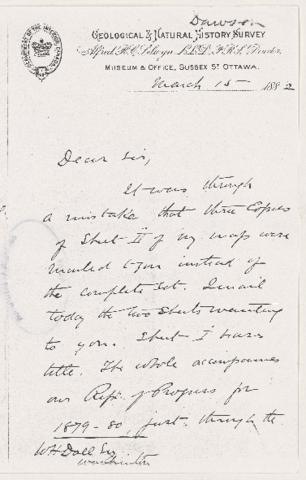 Dawson
GEOLOGICAL & NATURAL HISTORY SURVEY
Alfred R.C. Selwyn, LL.D., F.R.S., Director.
MUSEUM & OFFICE, SUSSEX ST. OTTAWA.
March 15 1882
Dear Sir,
It was through
a mistake that three Copies
of Sheet II of my maps were
mailed to you instead of
the complete set. I mail
today the two Sheets wanting
to you. Sheet I bears
title. The whole accompanies
our Rept. of Progress for
1879-80, just through the
WH Dall Esq
Washington